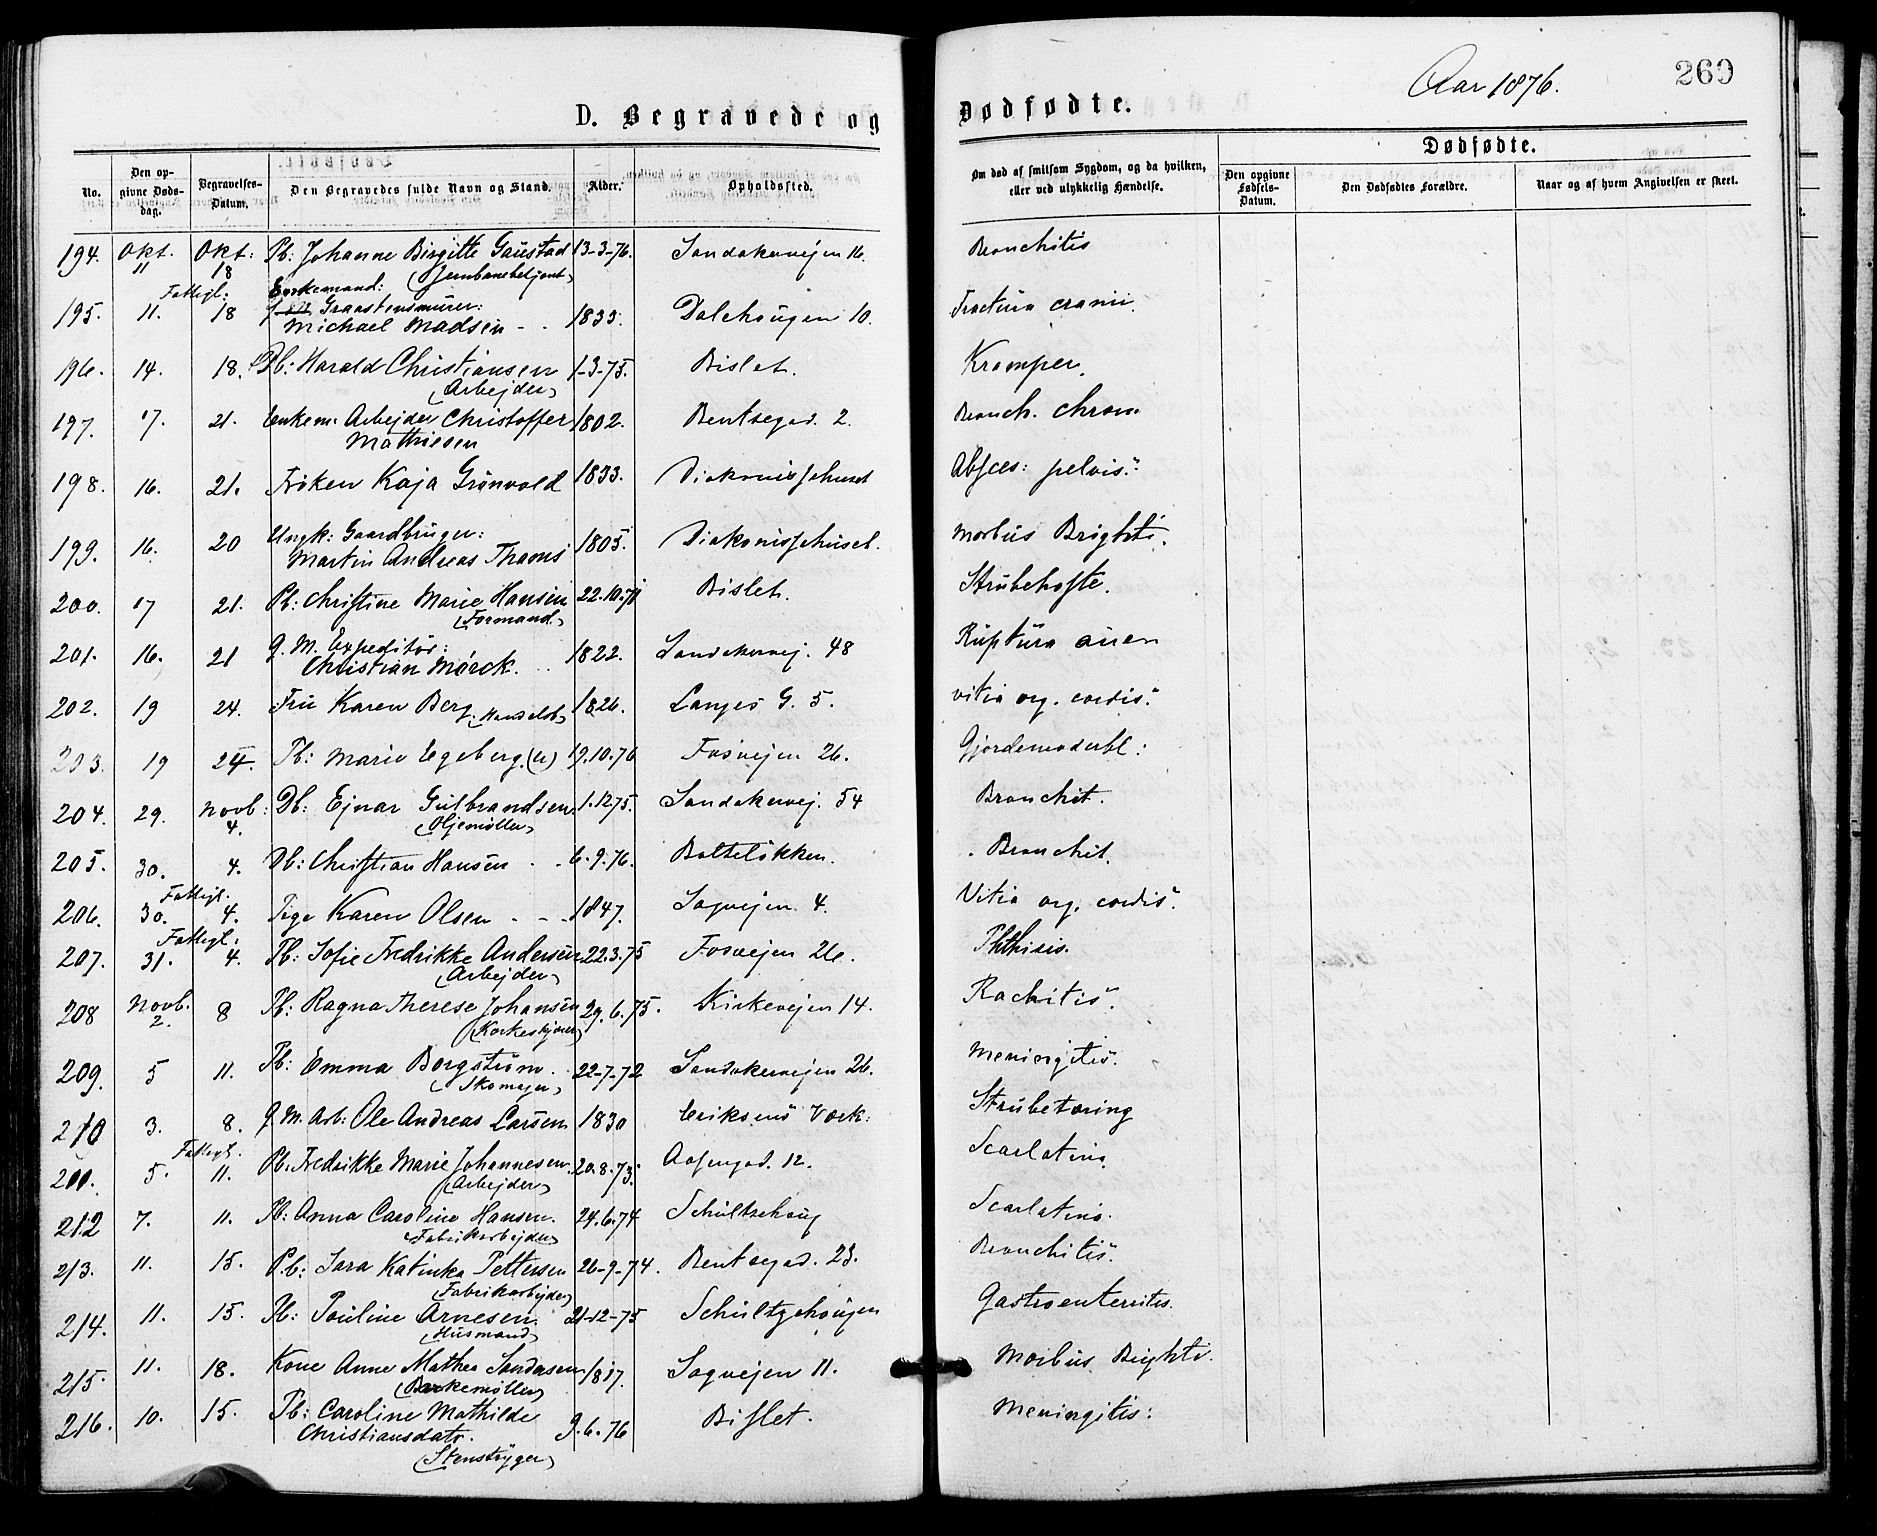 Aar 1876.
269
D. Begravede og Dødfødte.
No.
Den opgivne Dødsdag.
Begravelses-Datum.
Den Begravedes fulde Navn og Stand.
Alder.
Opholdssted.
Om død af smitsom Sygdom, og da hvilken, eller ved ulykkelig Hændelse.
Dødfødte.
Den opgivne Fødsels-Datum.
Den Dødfødtes Forældre.
Naar og af hvem Angivelsen er skeet.
194. Okt. 11 Okt: 18 Pb: Johanne Birgitte Gaustad (Jernbanebetjent) 13-3-76. Sandakervejen 16. Bronchitis
195. 11. Fattigl: 18 Enkemand: Graastensmurer: Michael Madsen - - 1833. Dalehaugen 10. Fractura cranii.
196. 14. 18. Db: Harald Christiansen (Arbejder) 1-3-75. Bislet. Kramper.
197. 17. 21. Enkem: Arbejder Christoffer Mathiesen 1802. Bentsegad. 2. Bronch. chron.
198. 16. 21. Frøken Kaja Grønvold 1833. Diakonissehuset Absces: pelvis.
199. 16. 20 Ungk: Gaardbruger: Martin Andreas Thams 1805. Diakonissehuset. Morbus Brighti.
200. 17 21. Pb: Christine Marie Hansen (Formand) 22.10.71 Bislet. Strubehoste.
201. 16. 21 G. M. Expeditør: Christian Mörck. 1822. Sandakervej. 48 Ruptura
202. 19 24. Fru Karen Berg. (Handelsb) 1826. Langes G. 5. Vitia org. cordis.
203. 19 24. Pb: Marie Egeberg. (u) 19.10.76 Fosvejen 26. Gjordemoderbl:
204. 29. Novb: 4. Db: Ejnar Gulbrandsen (Oljemøller) 1.12.75. Sandakervej. 54 Bronchit.
205. 30. 4. Db: Christian Hansen - - 6.9.76. Bolteløkken. Bronchit.
206. 30. Fattigl. 4. Pige Karen Olsen - - 1847. Sagvejen 4. Vitia org. cordis.
207. 31. Fattigl. 4. Pb: Sofie Fredrikke Andersen (Arbejder) 22.3.75 Fosvejen 26. Phthisis.
208 Novb. 2. 8 Pb: Ragna Therese Johansen (Korkeskjærer) 29.6.75. Kirkevejen 14. Rachitis.
209. 5 11. Pb: Emma Bergstrøm. (Skomager) 22-7-72 Sandakervejen 26. Meningitis.
210 3. 8. G. M. Arb: Ole Andreas Larsen 1830 Eriksens Værk: Strubetæring
211. 5. Fattigl. 11. Pb: Fredrikke Marie Johannesen (Arbejder) 20.8.73. Aasengad. 12. Scarlatina.
212 7. 11. Pb: Anna Caroline Hansen. (Fabrikarbejder) 24.6.74 Schultzehaug Scarlatina.
213. 11. 15. Pb: Sara Katinka Pettersen (Fabrikarbejder) 26-9-74. Bentsegad. 23. Bronchitis.
214. 11. 15. Pb: Pauline Arnesen. (Husmand) 21-12-75 Schultzehaugen Gastroenterites.
215. 11. 18. Kone Anne Mathea Sandersen (Barkemøller) 1817. Sagvejen 11. Morbus Brighti.
216. 10. 15. Pb: Caroline Mathilde Christiansdatr. (Stenstryger) 9.6.76 Bislet. Meningitis: